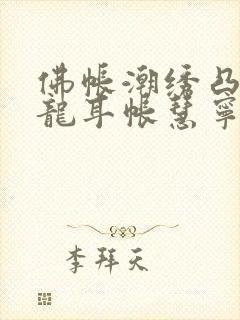 佛帐潮绣凸
龍耳帐慧寧
李拜天